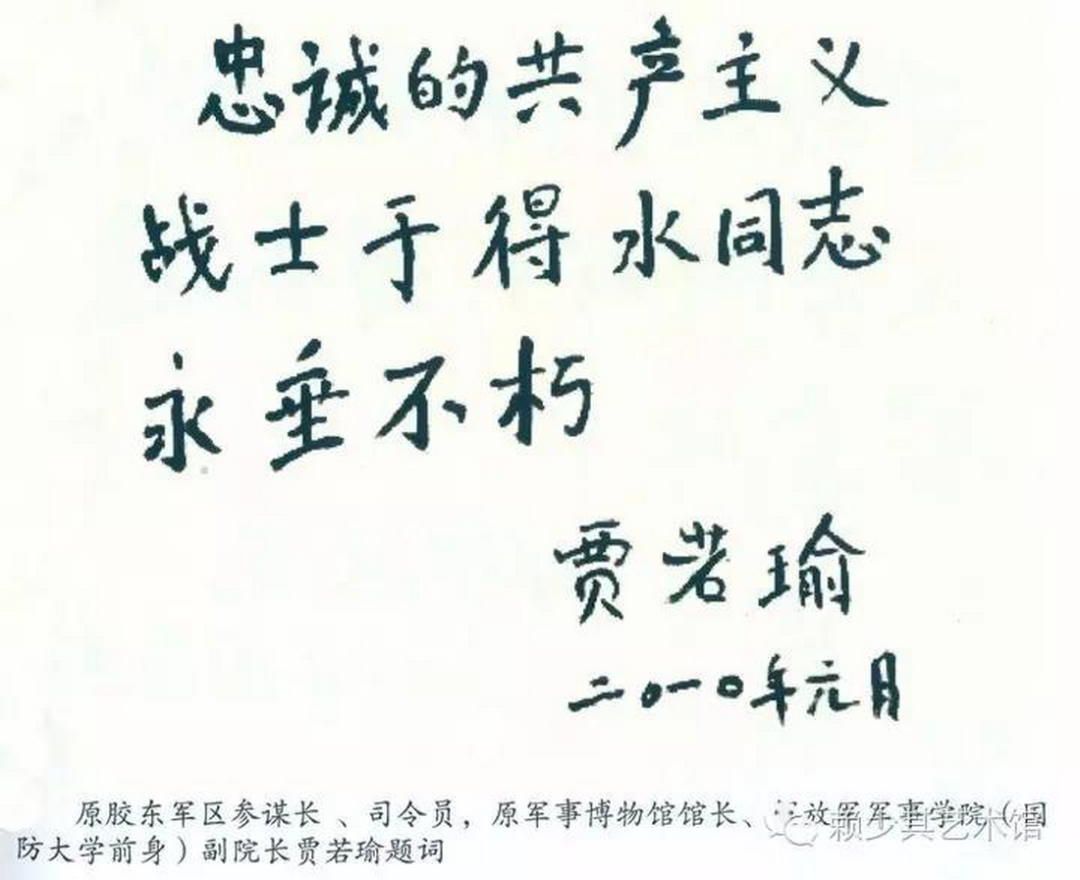 忠誠的共产主义
战士于得水同志
永垂不朽
贾若瑜
二〇一〇年元月
原胶东军区参谋长、司令员，原军事博物馆馆长、放军军事学院（国
防大学前身）副院长贾若瑜题词
赖少其艺术馆